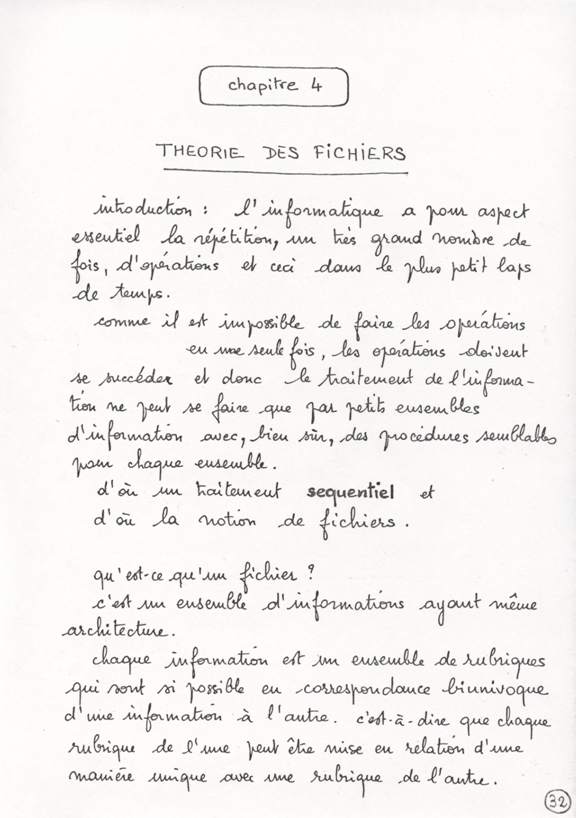 chapitre 4
THEORIE DES FiCHiERS
introduction : l'informatique a pour aspect
essentiel la répétition, un très grand nombre de
fois, d'opérations et ceci dans le plus petit laps
de temps.
comme il est impossible de faire les opérations
en une seule fois, les opérations doivent
se succéder et donc le traitement de l'informa-
tion ne peut se faire que par petits ensembles
d'information avec, bien sûr, des procédures semblables
pour chaque ensemble.
d'où un traitement sequentiel et
d'où la notion de fichiers.
qu'est-ce qu'un fichier ?
c'est un ensemble d'informations ayant même
architecture.
chaque information est un ensemble de rubriques
qui sont si possible en correspondance biunivoque
d'une information à l'autre. c'est-à-dire que chaque
rubrique de l'une peut être mise en relation d'une
manière unique avec une rubrique de l'autre.
32